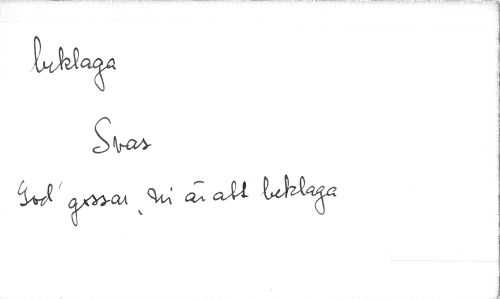 beklaga
Svas
God' gossar, ni är att beklaga